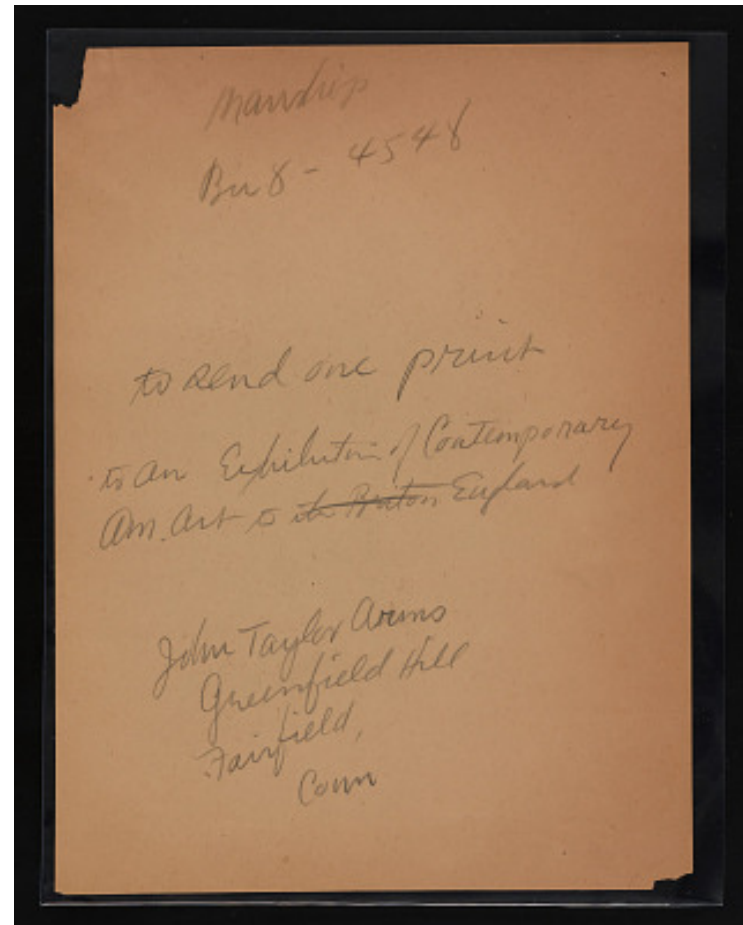 Bu 8 - 4548
to send one print
to an Exhibition of Contemporary
Am. Art to England
John Taylor Arms
Greenfield Hill
Fairfield,
Conn